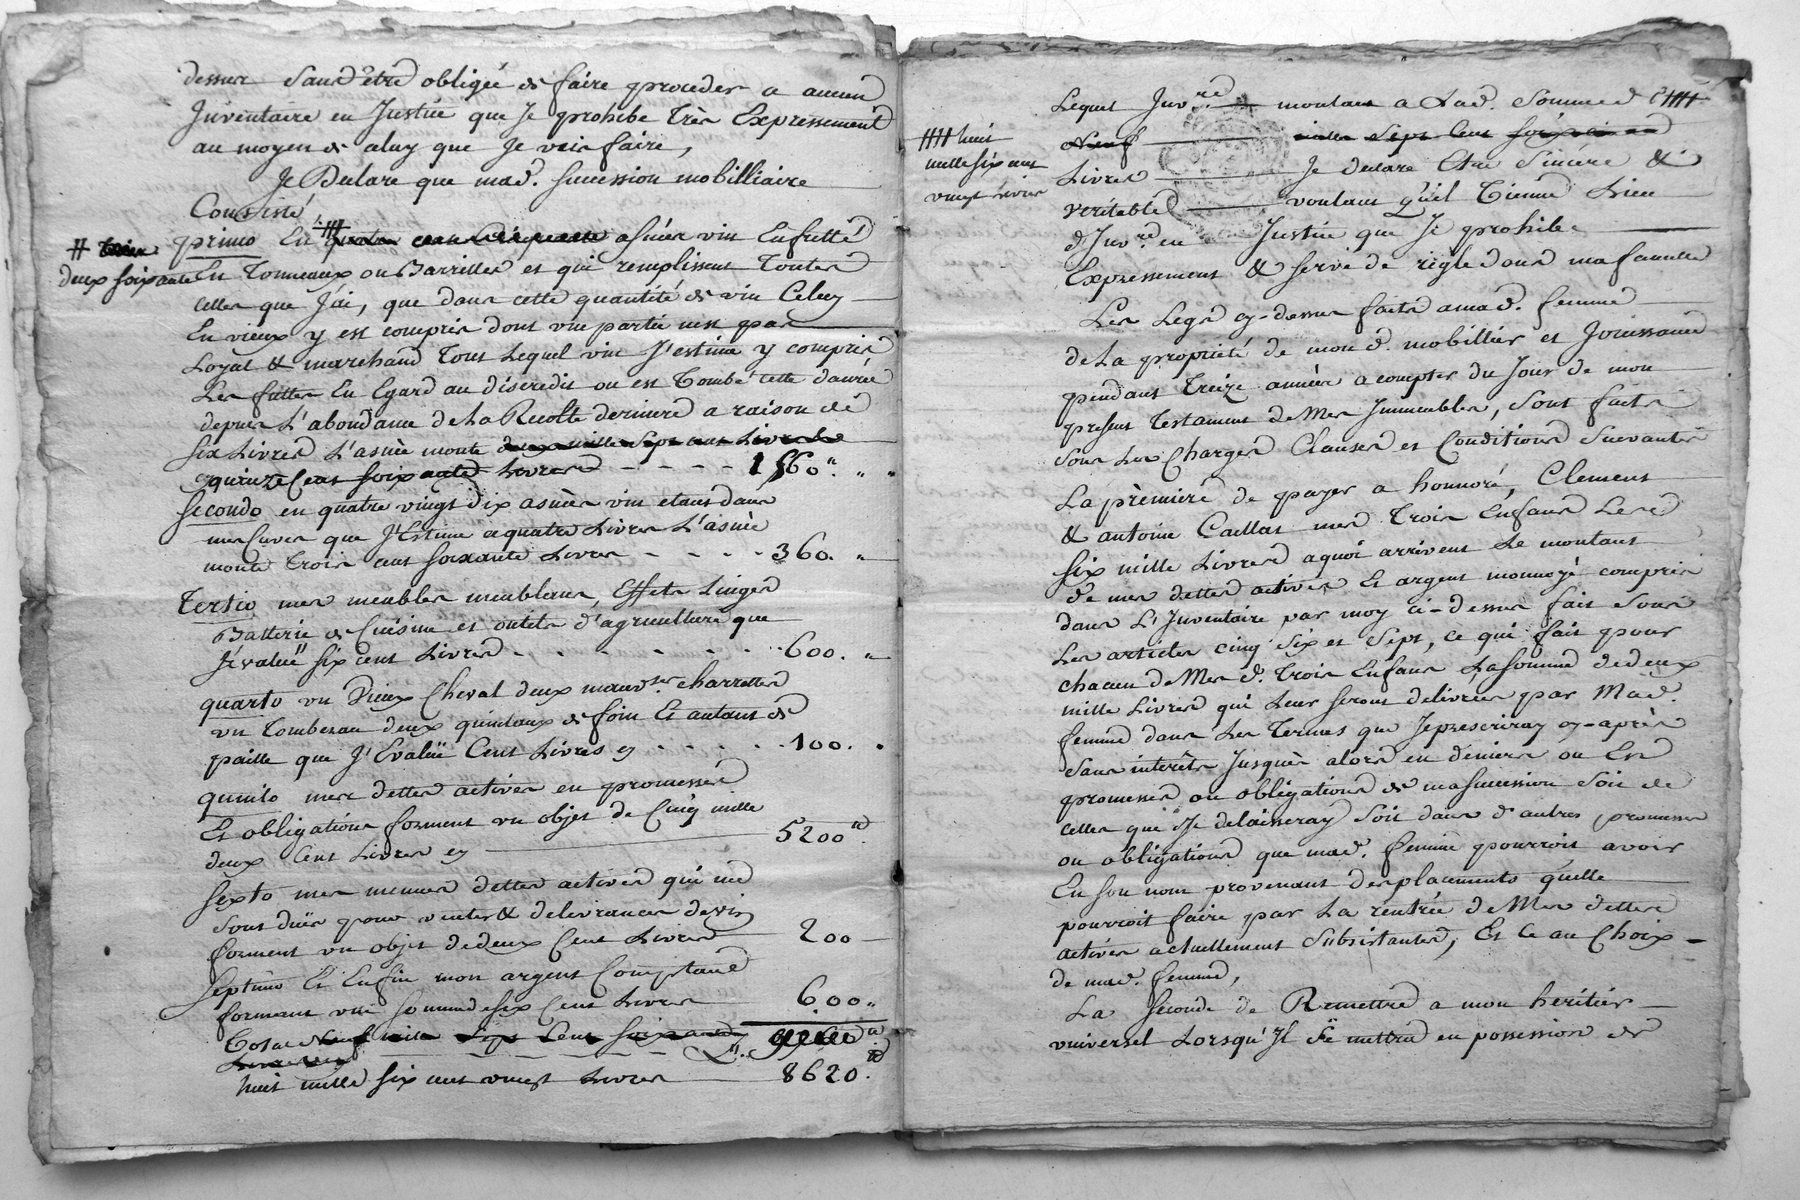 dessus sans être obligée de faire proceder a aucun
Inventaire en Justice que Je prohibe Très Expressement
au moyen de celuy que Je vais faire,
Je Declare que mad. succession mobilliaire
Consiste
primo En asnées vin Enfutté
# deux soixante
En Tonneaux ou Barrilles et qui remplissent Toutes
celles que J'ai, que dans cette quantité de vin Celuy
En vieux y est compris dont une partie nest pas
Loyal & marchand Tout Lequel vin J'estime y compris
Les futtes En Egard au discredit ou est Tombé cette danrée
depuis L'abondance de La Recolte derniere a raison de
six Livres L'asnée monte deux mille sept cent Livres
quinze Cent soixante Livres - - - - 1560" " "
Secondo en quatre vingt dix asnées vin etant dans
mes Cuves que J'Estime a quatre Livres L'asnée
monte trois cent soixante Livres - - - - 360. "
Tertio mes meubles meublans, Effets Linges
Batterie de Cuisine et outils d'agriculture que
J'évalüe six cent Livres - - - - - - 600. "
quarto un vieux Cheval deux mauv.ses charrettes
un Tombereau deux quintaux de foin Et autant de
paille que J'Evalüe Cent Livres cy - - - - - 100. "
quinto mes dettes actives en promesses
Et obligations forment un objet de Cinq mille
deux Cent Livres cy 5200
Sexto mes menues dettes actives qui me
sont dües pour ventes & delivrances de vin
forment un objet de deux Cent Livres 200
Septimo Et Enfin mon argent Comptant
formant une somme de six Cent Livres 600"
Total Neuf mille sept Cent soixante
Livres
huit mille six cent vingt Livres 8620.
Lequel Inv.re montant a Lad. somme d ####
#### huit
mille six cent
vingt livres
Neuf mille sept Cent soixante
Livres Je declare Etre Sincère &
veritable voulant qu'il Tienne Lieu
d'Inv.re en Justice que Je prohibe
Expressement & serve de règle dans ma famille
Les Legs cy-dessus faits a mad. femme
de La proprieté de mon d. mobillier et Jouissance
pendant Treize années a compter du Jour de mon
present Testament de Mes Immeubles, sont faits
sous Les Charges Clauses et Conditions Suivantes
La première de payer a honnoré, Clement
& antoine Caillat mes Trois Enfans Les d
six mille Livres a quoi arrivent Le montant
de mes dettes actives Et argent monnoyé compris
dans L'Inventaire par moy ci-dessus fait sous
Les articles cinq six et sept, ce qui fait pour
chacun de Mes d. trois Enfans La somme de deux
mille Livres qui Leur seront delivrées par Mad.
femme dans Les Termes que Je prescriray cy-après
sans interêts Jusqu'à alors en deniers ou En
promesses ou obligations de ma succession soit de
celles que Je delaisseray soit dans d'autres promesses
ou obligations que mad. femme pourroit avoir
En son nom provenant des placements qu'elle
pourroit faire par La rentrée de Mes dettes
actives actuellement Subsistantes, Et Ce au Choix
de mad. femme,
La Seconde de Remettre a mon heritier
universel Lorsqu'Il se mettra en possession de